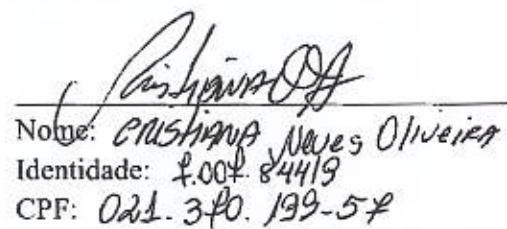 Cristiana
Nome: Cristiana Neves Oliveira
Identidade: 7.007.84419
CPF: 021.370.199-57